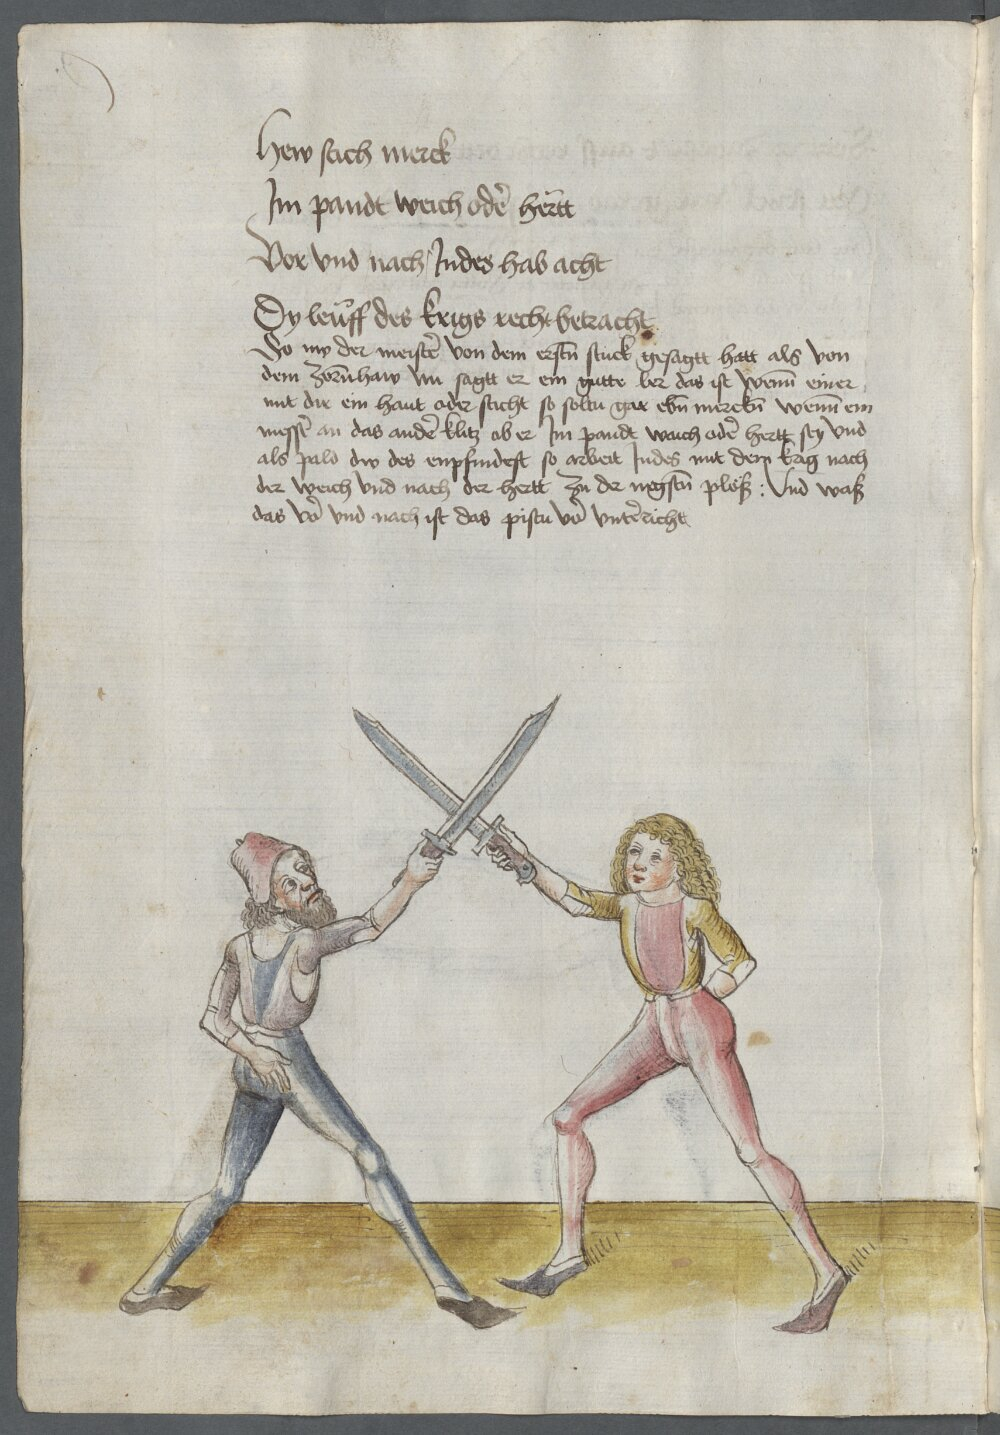 Hew stich merck
Im pandt weich oder hertt
Vor vnd nach Indes hab acht
Dy leuff des krigs recht betracht
So my der meister von dem ersten stuck gesagtt hatt als von
dem Zornhaw Nu sagtt er ein gutte ler das ist wenn einer
mit dir ein haut oder sticht so soltu gar ebn mercken wenn ein
messer an das ander klitz ob er Im pandt waich oder hertt sey vnd
als pald dw des enpfindest so arbeit Indes mit dem krig nach
der weich vnd nach der hertt zu der negsten plöß : Vnd waß
das vor vnd nach ist das pistu vor vnterricht